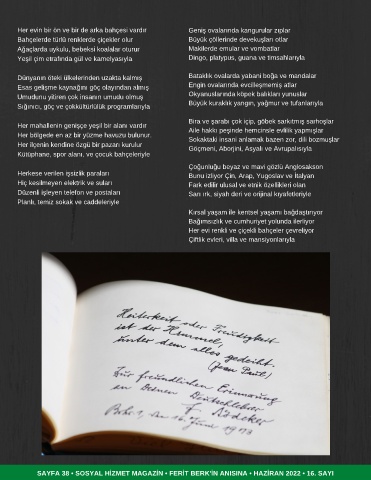 Her evin bir ön ve bir de arka bahçesi vardır
Bahçelerde türlü renklerde çiçekler olur
Ağaçlarda uykulu, bebeksi koalalar oturur
Yeşil çim etrafında gül ve kamelyasıyla
Dünyanın öteki ülkelerinden uzakta kalmış
Esas gelişme kaynağını göç olayından almış
Umudunu yitiren çok insanın umudu olmuş
Sığınıcı, göç ve çokkültürlülük programlarıyla
Her mahallenin genişçe yeşil bir alanı vardır
Her bölgede en az bir yüzme havuzu bulunur.
Her ilçenin kendine özgü bir pazarı kurulur
Kütüphane, spor alanı, ve çocuk bahçeleriyle
Herkese verilen işsizlik paraları
Hiç kesilmeyen elektrik ve suları
Düzenli işleyen telefon ve postaları
Planlı, temiz sokak ve caddeleriyle
Geniş ovalarında kangurular zıplar
Büyük çöllerinde devekuşları otlar
Makilerde emular ve vombatlar
Dingo, platypus, guana ve timsahlarıyla
Bataklık ovalarda yabani boğa ve mandalar
Engin ovalarında evcilleşmemiş atlar
Okyanuslarında köpek balıkları yunuslar
Büyük kuraklık yangın, yağmur ve tufanlarıyla
Bira ve şarabı çok içip, göbek sarkıtmış sarhoşlar
Aile hakkı peşinde hemcinsle evlilik yapmışlar
Sokaktaki insanı anlamak bazen zor, dili bozmuşlar
Göçmeni, Aborjini, Asyalı ve Avrupalısıyla
Çoğunluğu beyaz ve mavi gözlü Anglosakson
Bunu izliyor Çin, Arap, Yugoslav ve İtalyan
Fark edilir ulusal ve etnik özellikleri olan
Sarı ırk, siyah deri ve orijinal kıyafetleriyle
Kırsal yaşam ile kentsel yaşamı bağdaştırıyor
Bağımsızlık ve cumhuriyet yolunda ilerliyor
Her evi renkli ve çiçekli bahçeler çevreliyor
Çiftlik evleri, villa ve mansiyonlarıyla
Heiterkeit oder Freudigkeit
ist der Himmel,
unter dem alles gedeiht.
(Jean Paul)
Zur freundlichen Erinnerung
an Deinen Deutschlehrer
F. Rödeker
SAYFA 38 • SOSYAL HİZMET MAGAZİN • FERİT BERK'İN ANISINA • HAZİRAN 2022 • 16. SAYI